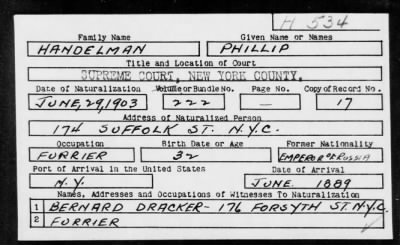 H 534
Family Name Given Name or Names
HANDELMAN PHILLIP
Title and Location of Court
SUPREME COURT, NEW YORK COUNTY.
Date of Naturalization Volume or Bundle No. Page No. Copy of Record No.
JUNE, 29, 1903 222 — 17
Address of Naturalized Person
174 SUFFOLK ST. N.Y.C.
Occupation Birth Date or Age Former Nationality
FURRIER 32 EMPEROR OF RUSSIA
Port of Arrival in the United States Date of Arrival
N.Y. JUNE 1889
Names, Addresses and Occupations of Witnesses To Naturalization
1 BERNARD DRACKER - 176 FORSYTH ST. N.Y.C.
2 FURRIER